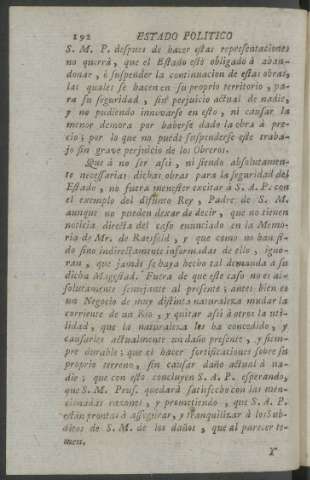 192 ESTADO POLITICO
S. M. P. despues de hacer estas representaciones
no querrá, que el Estado esté obligado à aban-
donar, ò suspender la continuacion de estas obras,
las quales se hacen en su proprio territorio, pa-
ra su seguridad, sin perjuicio actual de nadie,
y no pudiendo innovarse en esto, ni causar la
menor demora por haberse dado la obra à pre-
cio; por lo que no puede suspenderse este traba-
jo sin grave perjuicio de los Obreros.
Que à no ser assi, ni siendo absolutamen-
te necessarias dichas obras para la seguridad del
Estado, no fuera menester excitar à S. A. P. con
el exemplo del difunto Rey, Padre de S. M.
aunque no pueden dexar de decir, que no tienen
noticia directa del caso enunciado en la Memo-
ria de Mr. de Raesfeld, y que como no han si-
do sino indirectamente informadas de ello, igno-
ran, que jamàs se haya hecho tal demanda à su
dicha Magestad. Fuera de que este caso no es ab-
solutamente semejante al presente; antes bien es
un Negocio de muy distinta naturaleza mudar la
corriente de un Rio, y quitar assi à otros la uti-
lidad, que la naturaleza les ha concedido, y
causarles actualmente un daño presente, y siem-
pre durable; que el hacer fortificaciones sobre su
proprio terreno, sin causar daño actual à na-
die; que con esto concluyen S. A. P. esperando,
que S. M. Prus. quedarà satisfecho con las men-
cionadas razones, y prometiendo, que S. A. P.
estàn prontas à assegurar, y tranquilizar à los Sub-
ditos de S. M. de los daños, que al parecer te-
men.
Y